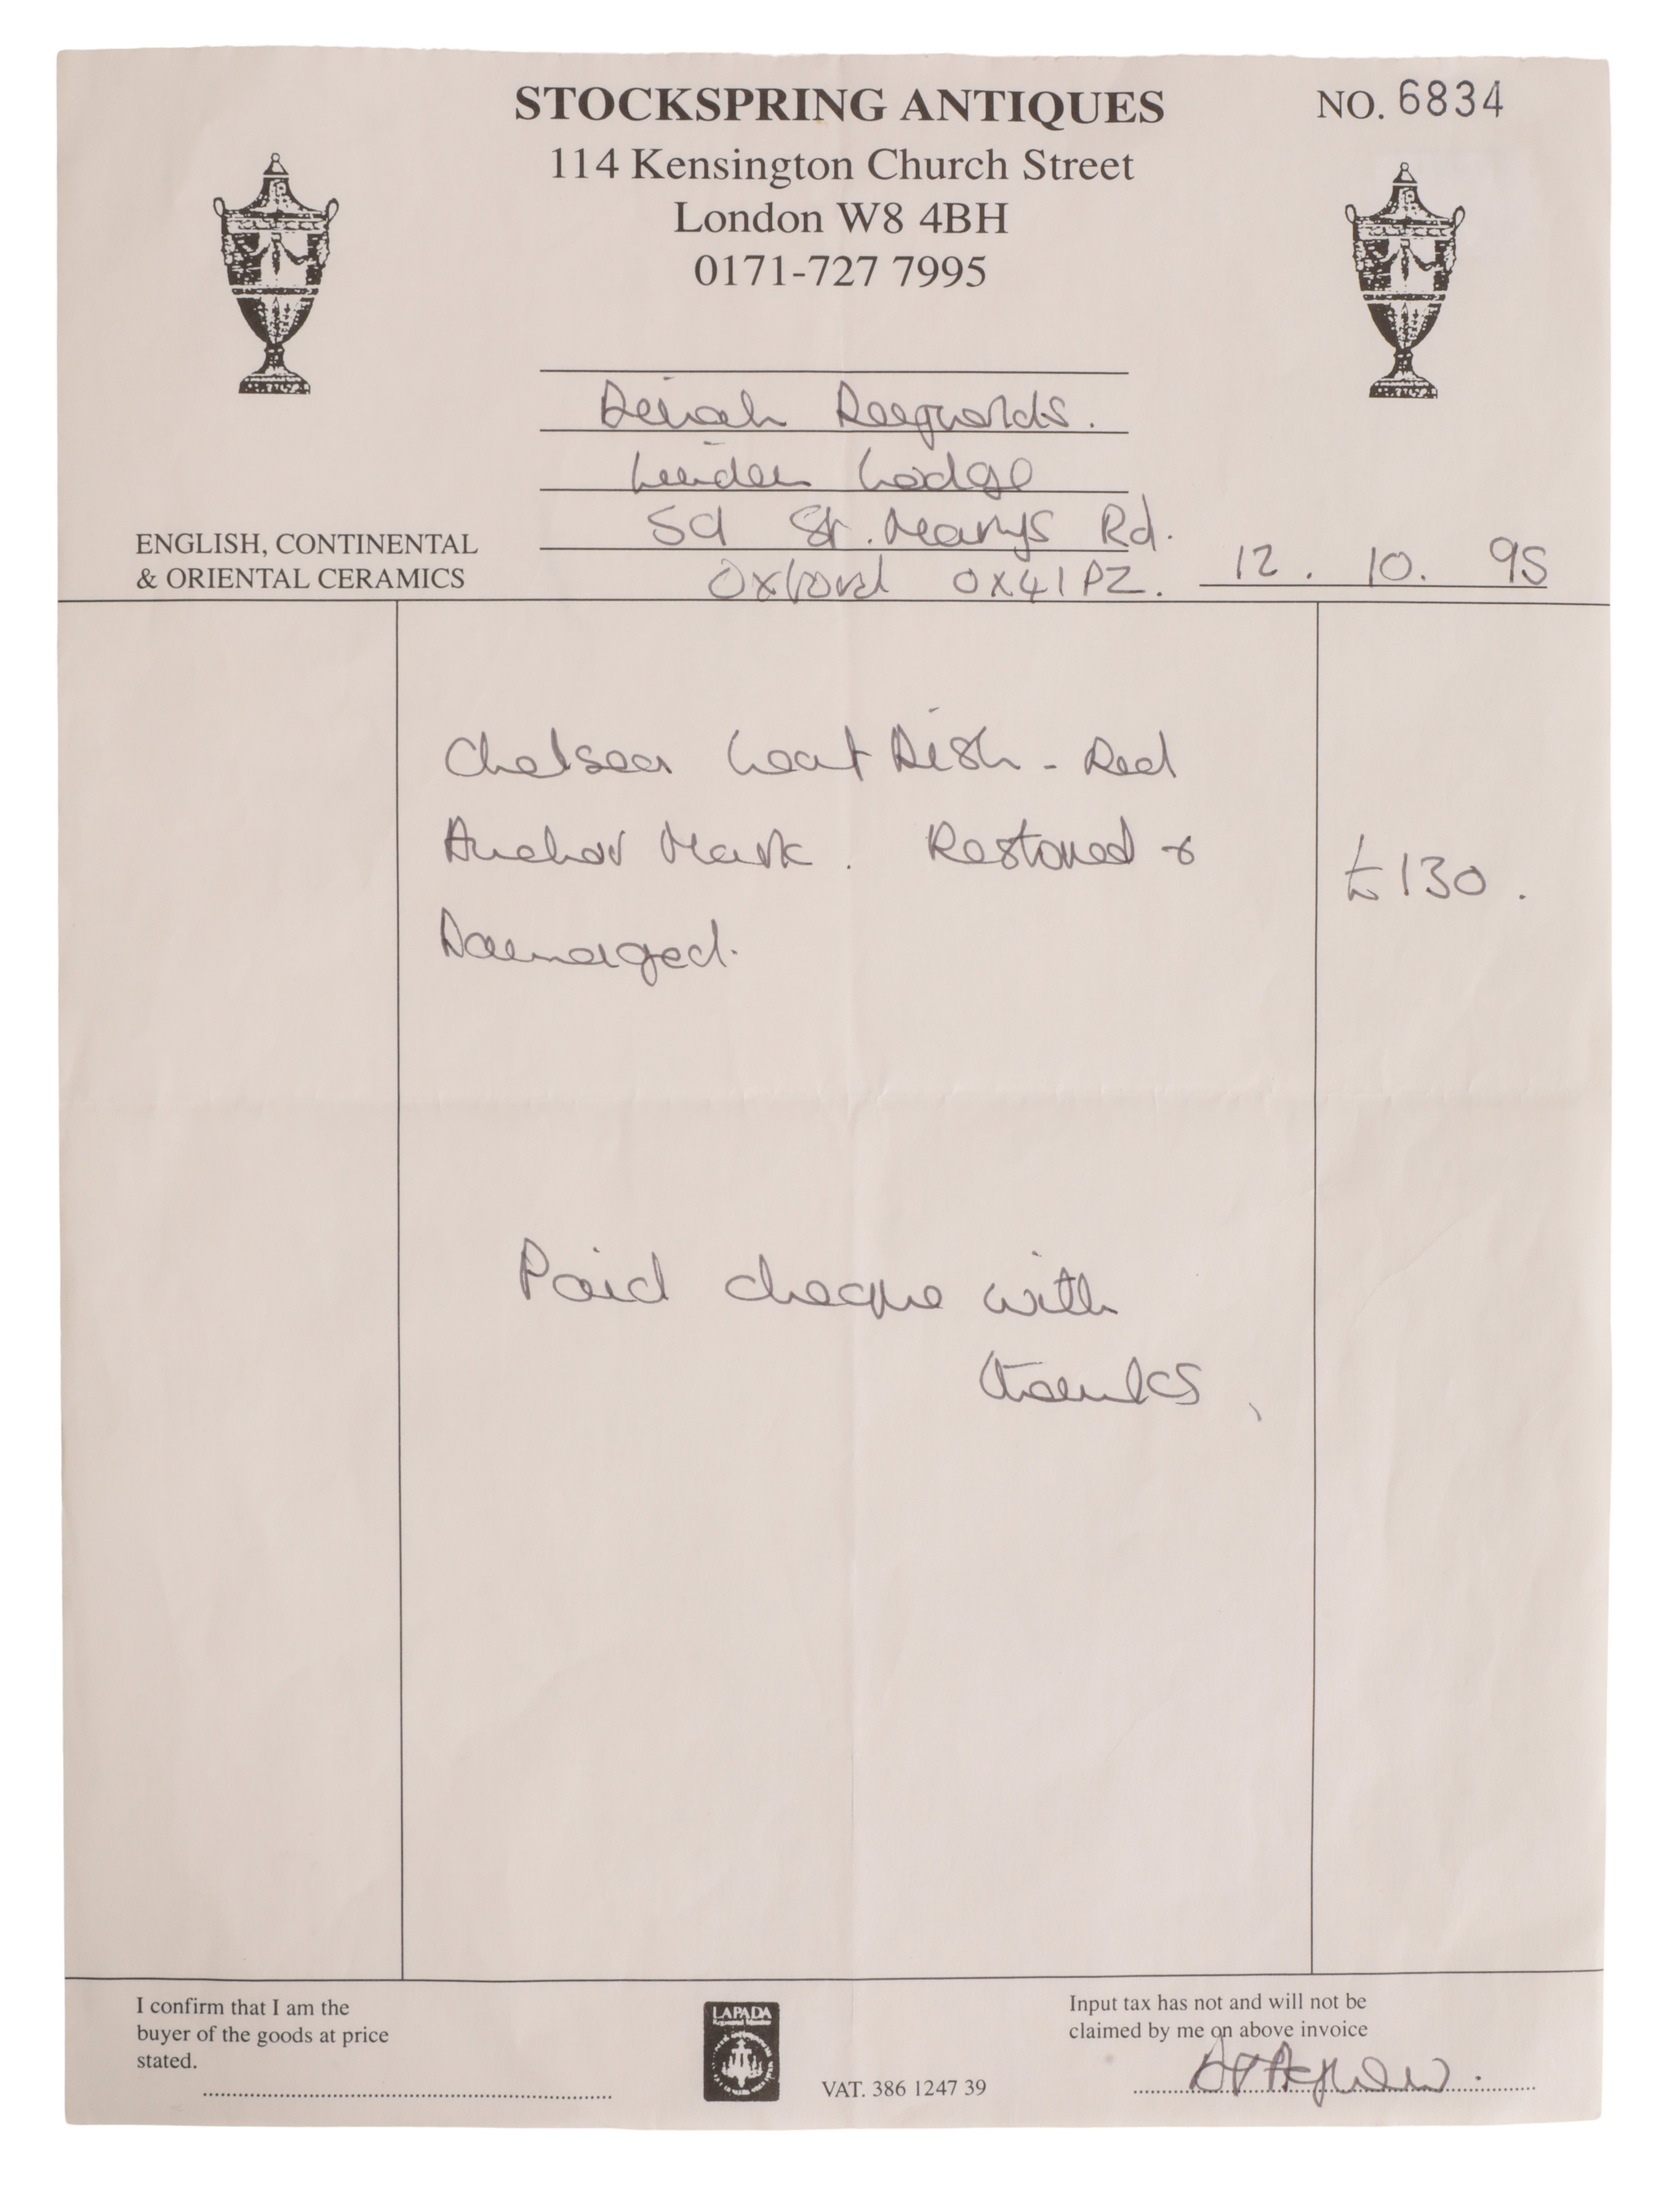 STOCKSPRING ANTIQUES
NO. 6834
114 Kensington Church Street
London W8 4BH
0171-727 7995
Dinah Reynolds.
Linden Lodge
59 St. Marys Rd.
Oxford OX4 1PZ.
ENGLISH, CONTINENTAL
& ORIENTAL CERAMICS
12. 10. 95
Chelsea Leaf Dish - Red
Anchor Mark. Restored &
Damaged.
£130.
Paid cheque with
thanks,
I confirm that I am the
buyer of the goods at price
stated.
LAPADA
VAT. 386 1247 39
Input tax has not and will not be
claimed by me on above invoice